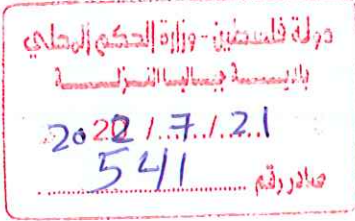 دولة فلسطين - وزارة الحكم المحلي
بلديـــة جباليا النـزلــة
2022 / 7 / 21
صادر رقم 541